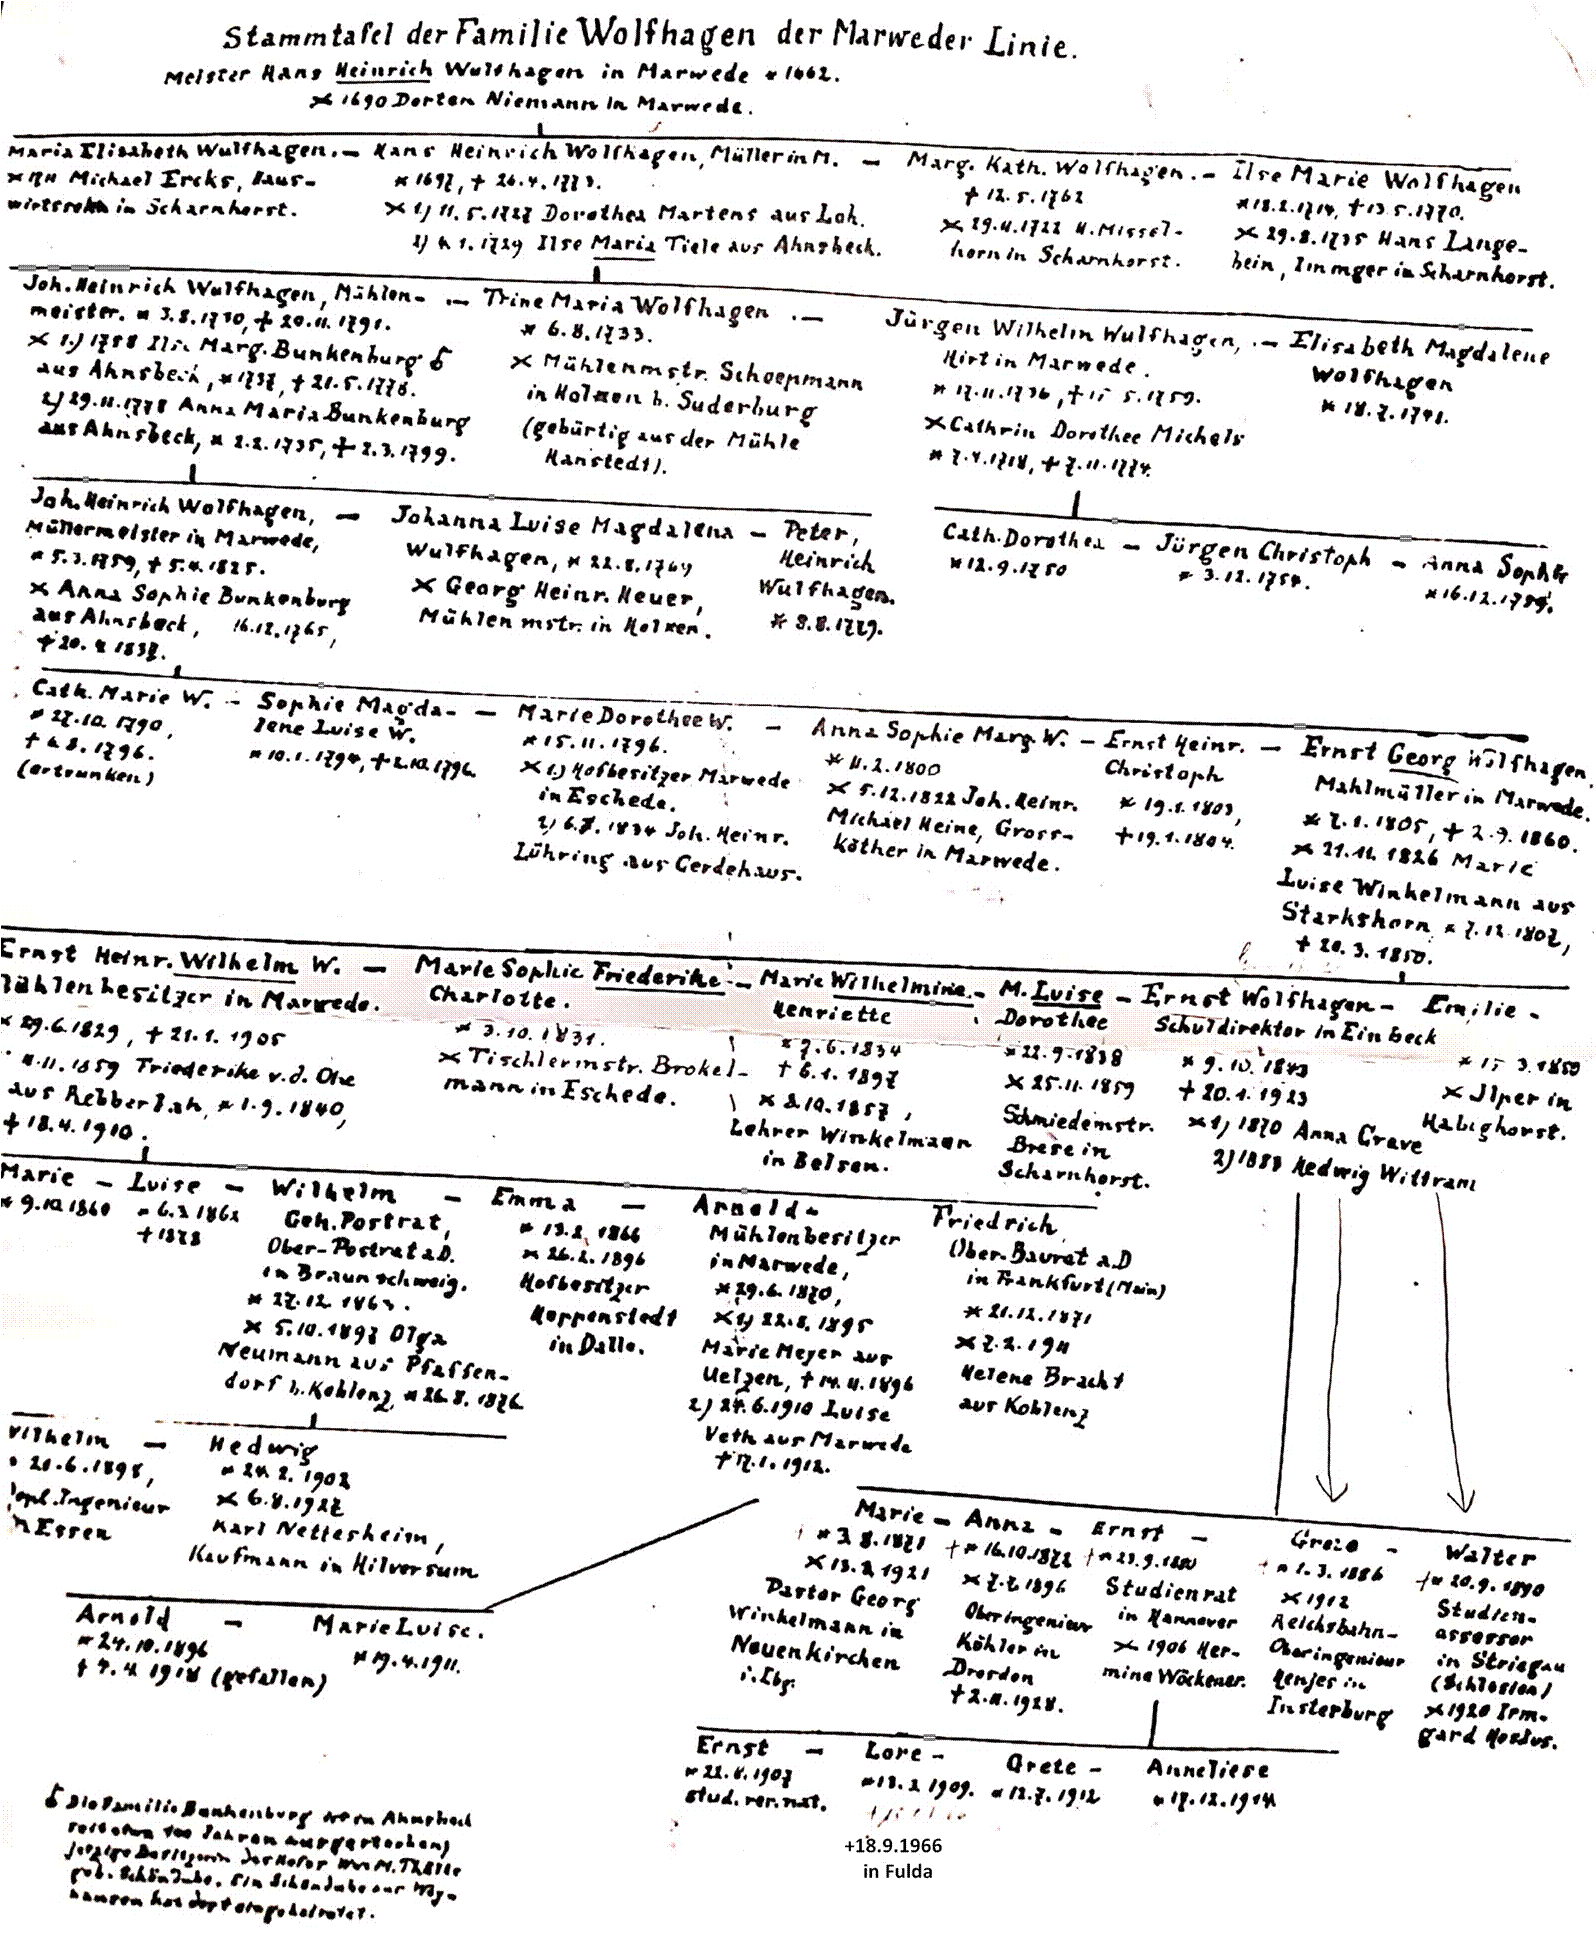 Stammtafel der Familie Wolfhagen der Marweder Linie.
Meister Hans Heinrich Wulfhagen in Marwede * 1662.
× 1690 Dorten Niemann in Marwede.
Maria Elisabeth Wulfhagen. —
Michael Ercks, Haus-
in Scharnhorst.
Hans Heinrich Wolfhagen, Müller in M. —
* 1697, + 26.4.1773.
× 1) 11.5.1727 Dorothea Martens aus Loh.
2) 1.1729 Ilse Maria Tiele aus Ahnsbeck.
Marg. Kath. Wolfhagen. —
+ 12.5.1762
× 29.11.1722 H. Missel-
horn in Scharnhorst.
Ilse Marie Wolfhagen
* 18.2.1714, + 13.5.1770.
× 29.8.1735 Hans Lange-
hein, Immger in Scharnhorst.
Joh. Heinrich Wulfhagen, Mühlen- —
meister. * 3.8.1730, + 20.11.1791.
× 1.) 1758 Ilse Marg. Bunkenburg
aus Ahnsbeck, * 1737, + 21.5.1778.
2) 29.11.1778 Anna Maria Bunkenburg
aus Ahnsbeck, * 2.2.1735, + 2.3.1799.
Trine Maria Wolfhagen —
* 6.8.1733.
× Mühlenmstr. Schoepmann
in Holxen b. Suderburg
(gebürtig aus der Mühle
Hanstedt).
Jürgen Wilhelm Wulfhagen, —
Hirt in Marwede.
* 17.11.1736, + 15 5.1759.
× Cathrin Dorothee Michels
* 7.4.1718, + 7.11.1774.
Elisabeth Magdalene
Wolfhagen
* 18.7.1741.
Joh. Heinrich Wolfhagen, —
Müllermeister in Marwede,
* 5.3.1759, + 5.4.1825.
× Anna Sophie Bunkenburg
aus Ahnsbeck, 16.12.1765,
+ 20.4.1837.
Johanna Luise Magdalena —
Wulfhagen, * 22.8.1769
× Georg Heinr. Heuer,
Mühlenmstr. in Holxen.
Peter,
Heinrich
Wulfhagen.
* 8.8.1779.
Cath. Dorothea —
* 12.9.1750
Jürgen Christoph —
* 3.12.1754.
Anna Sophie
* 16.12.1759.
Cath. Marie W. —
* 27.10.1790,
+ 4.8.1796.
(ertrunken)
Sophie Magda- —
lene Luise W.
* 10.1.1794, + 2.10.1796.
Marie Dorothee W. —
* 15.11.1796.
× 1.) Hofbesitzer Marwede
in Eschede.
2) 6.7.1834 Joh. Heinr.
Lühring aus Gerdehaus.
Anna Sophie Marg W. —
* 11.2.1800
× 5.12.1822 Joh. Heinr.
Michael Heine, Gross-
köther in Marwede.
Ernst Heinr. —
Christoph
* 19.1.1803,
+ 19.1.1804.
Ernst Georg Wolfhagen,
Mahlmüller in Marwede.
* 7.1.1805, + 2.9.1860.
× 21.11.1826 Marie
Luise Winkelmann aus
Starkshorn * 7.12.1802,
+ 20.3.1850.
Ernst Heinr. Wilhelm W. —
Mühlenbesitzer in Marwede.
* 29.6.1829, + 21.1.1905
11.11.1859 Friederike v. d. Ohe
aus Rebberlah, * 1.9.1840,
+ 18.4.1910.
Marie Sophie Friederike —
Charlotte.
* 3.10.1831.
× Tischlermstr. Brokel-
mann in Eschede.
Marie Wilhelmine —
Henriette
* 7.6.1834
+ 6.1.1897
× 2.10.1857,
Lehrer Winkelmann
in Belsen.
M. Luise —
Dorothee
* 22.9.1838
× 25.11.1859
Schmiedemstr.
Brese in
Scharnhorst.
Ernst Wolfhagen —
Schuldirektor in Einbeck
* 9.10.1843
+ 20.1.1923
× 1) 1870 Anna Greve
2) 1883 Hedwig Wittram
Emilie —
* 15 3.1850
× Ilper in
Habighorst.
Marie —
* 9.10.1860
Luise —
* 6.3.1862
+ 1878
Wilhelm —
Geh. Postrat,
Ober-Postrat a.D.
in Braunschweig.
* 27.12.1863.
× 5.10.1897 Olga
Neumann aus Pfaffen-
dorf b. Koblenz, * 26.8.1876
Emma —
* 13.2.1866
× 26.2.1896
Hofbesitzer
Heppenstedt
in Dalle.
Arnold —
Mühlenbesitzer
in Marwede,
* 29.6.1870,
× 1) 22.8.1895
Marie Meyer aus
Uelzen, + 14.11.1896
2) 24.6.1910 Luise
Veth aus Marwede
+ 17.1.1912.
Friedrich
Ober-Baurat a.D
in Frankfurt (Main)
* 21.12.1871
× 7.2.1911
Helene Bracht
aus Koblenz
Wilhelm —
* 20.6.1898,
Dipl. Ingenieur
in Essen
Hedwig
* 24.2.1902
× 6.8.1927
Karl Nettesheim,
Kaufmann in Hilversum
Arnold —
* 24.10.1896
+ 4.4.1918 (gefallen)
Marie Luise.
* 19.4.1911.
Marie —
* 3.8.1871
× 13.2.1921
Pastor Georg
Winkelmann in
Neuenkirchen
i. Lbg.
Anna —
+ * 16.10.1872
× 7.2.1896
Oberingenieur
Köhler in
Dresden
+ 2.11.1928.
Ernst —
+ * 23.9.1880
Studienrat
in Hannover
× 1906 Her-
mine Wöckener.
Grete —
* 1.3.1886
× 1912
Reichsbahn-
Oberingenieur
Henjes in
Insterburg
Walter
+ * 20.9.1890
Studien-
assessor
in Striegau
(Schlesien)
× 1920 Irm-
gard Hostus.
Ernst —
* 22.8.1907
stud. rer. nat.
Lore —
* 13.2.1909.
Grete —
* 12.7.1912
Anneliese
* 17.12.1914
+18.9.1966
in Fulda
Die Familie Bunkenburg ist in Ahnsbeck
seit etwa 100 Jahren ausgestorben,
jetzige Besitzerin des Hofes M. Thiele
geb. Schöndube. Ein Schöndube aus Wey-
hausen hat dort eingeheiratet.